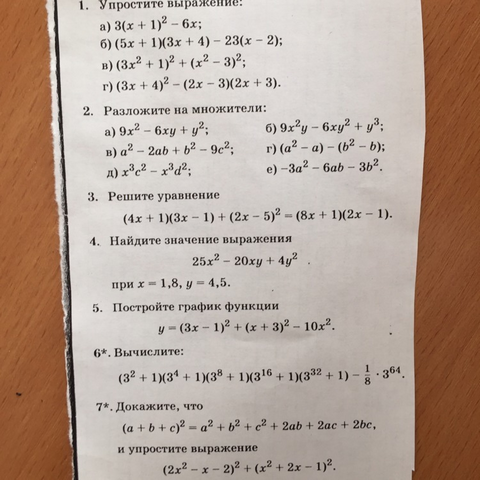 1. Упростите выражение:
а) 3(x + 1)² − 6x;
б) (5x + 1)(3x + 4) − 23(x − 2);
в) (3x² + 1)² + (x² − 3)²;
г) (3x + 4)² − (2x − 3)(2x + 3).
2. Разложите на множители:
а) 9x² − 6xy + y²; б) 9x²y − 6xy² + y³;
в) a² − 2ab + b² − 9c²; г) (a² − a) − (b² − b);
д) x³c² − x³d²; е) −3a² − 6ab − 3b².
3. Решите уравнение
(4x + 1)(3x − 1) + (2x − 5)² = (8x + 1)(2x − 1).
4. Найдите значение выражения
25x² − 20xy + 4y²
при x = 1,8, y = 4,5.
5. Постройте график функции
y = (3x − 1)² + (x + 3)² − 10x².
6*. Вычислите:
(3² + 1)(3⁴ + 1)(3⁸ + 1)(3¹⁶ + 1)(3³² + 1) − 1/8 · 3⁶⁴.
7*. Докажите, что
(a + b + c)² = a² + b² + c² + 2ab + 2ac + 2bc,
и упростите выражение
(2x² − x − 2)² + (x² + 2x − 1)².